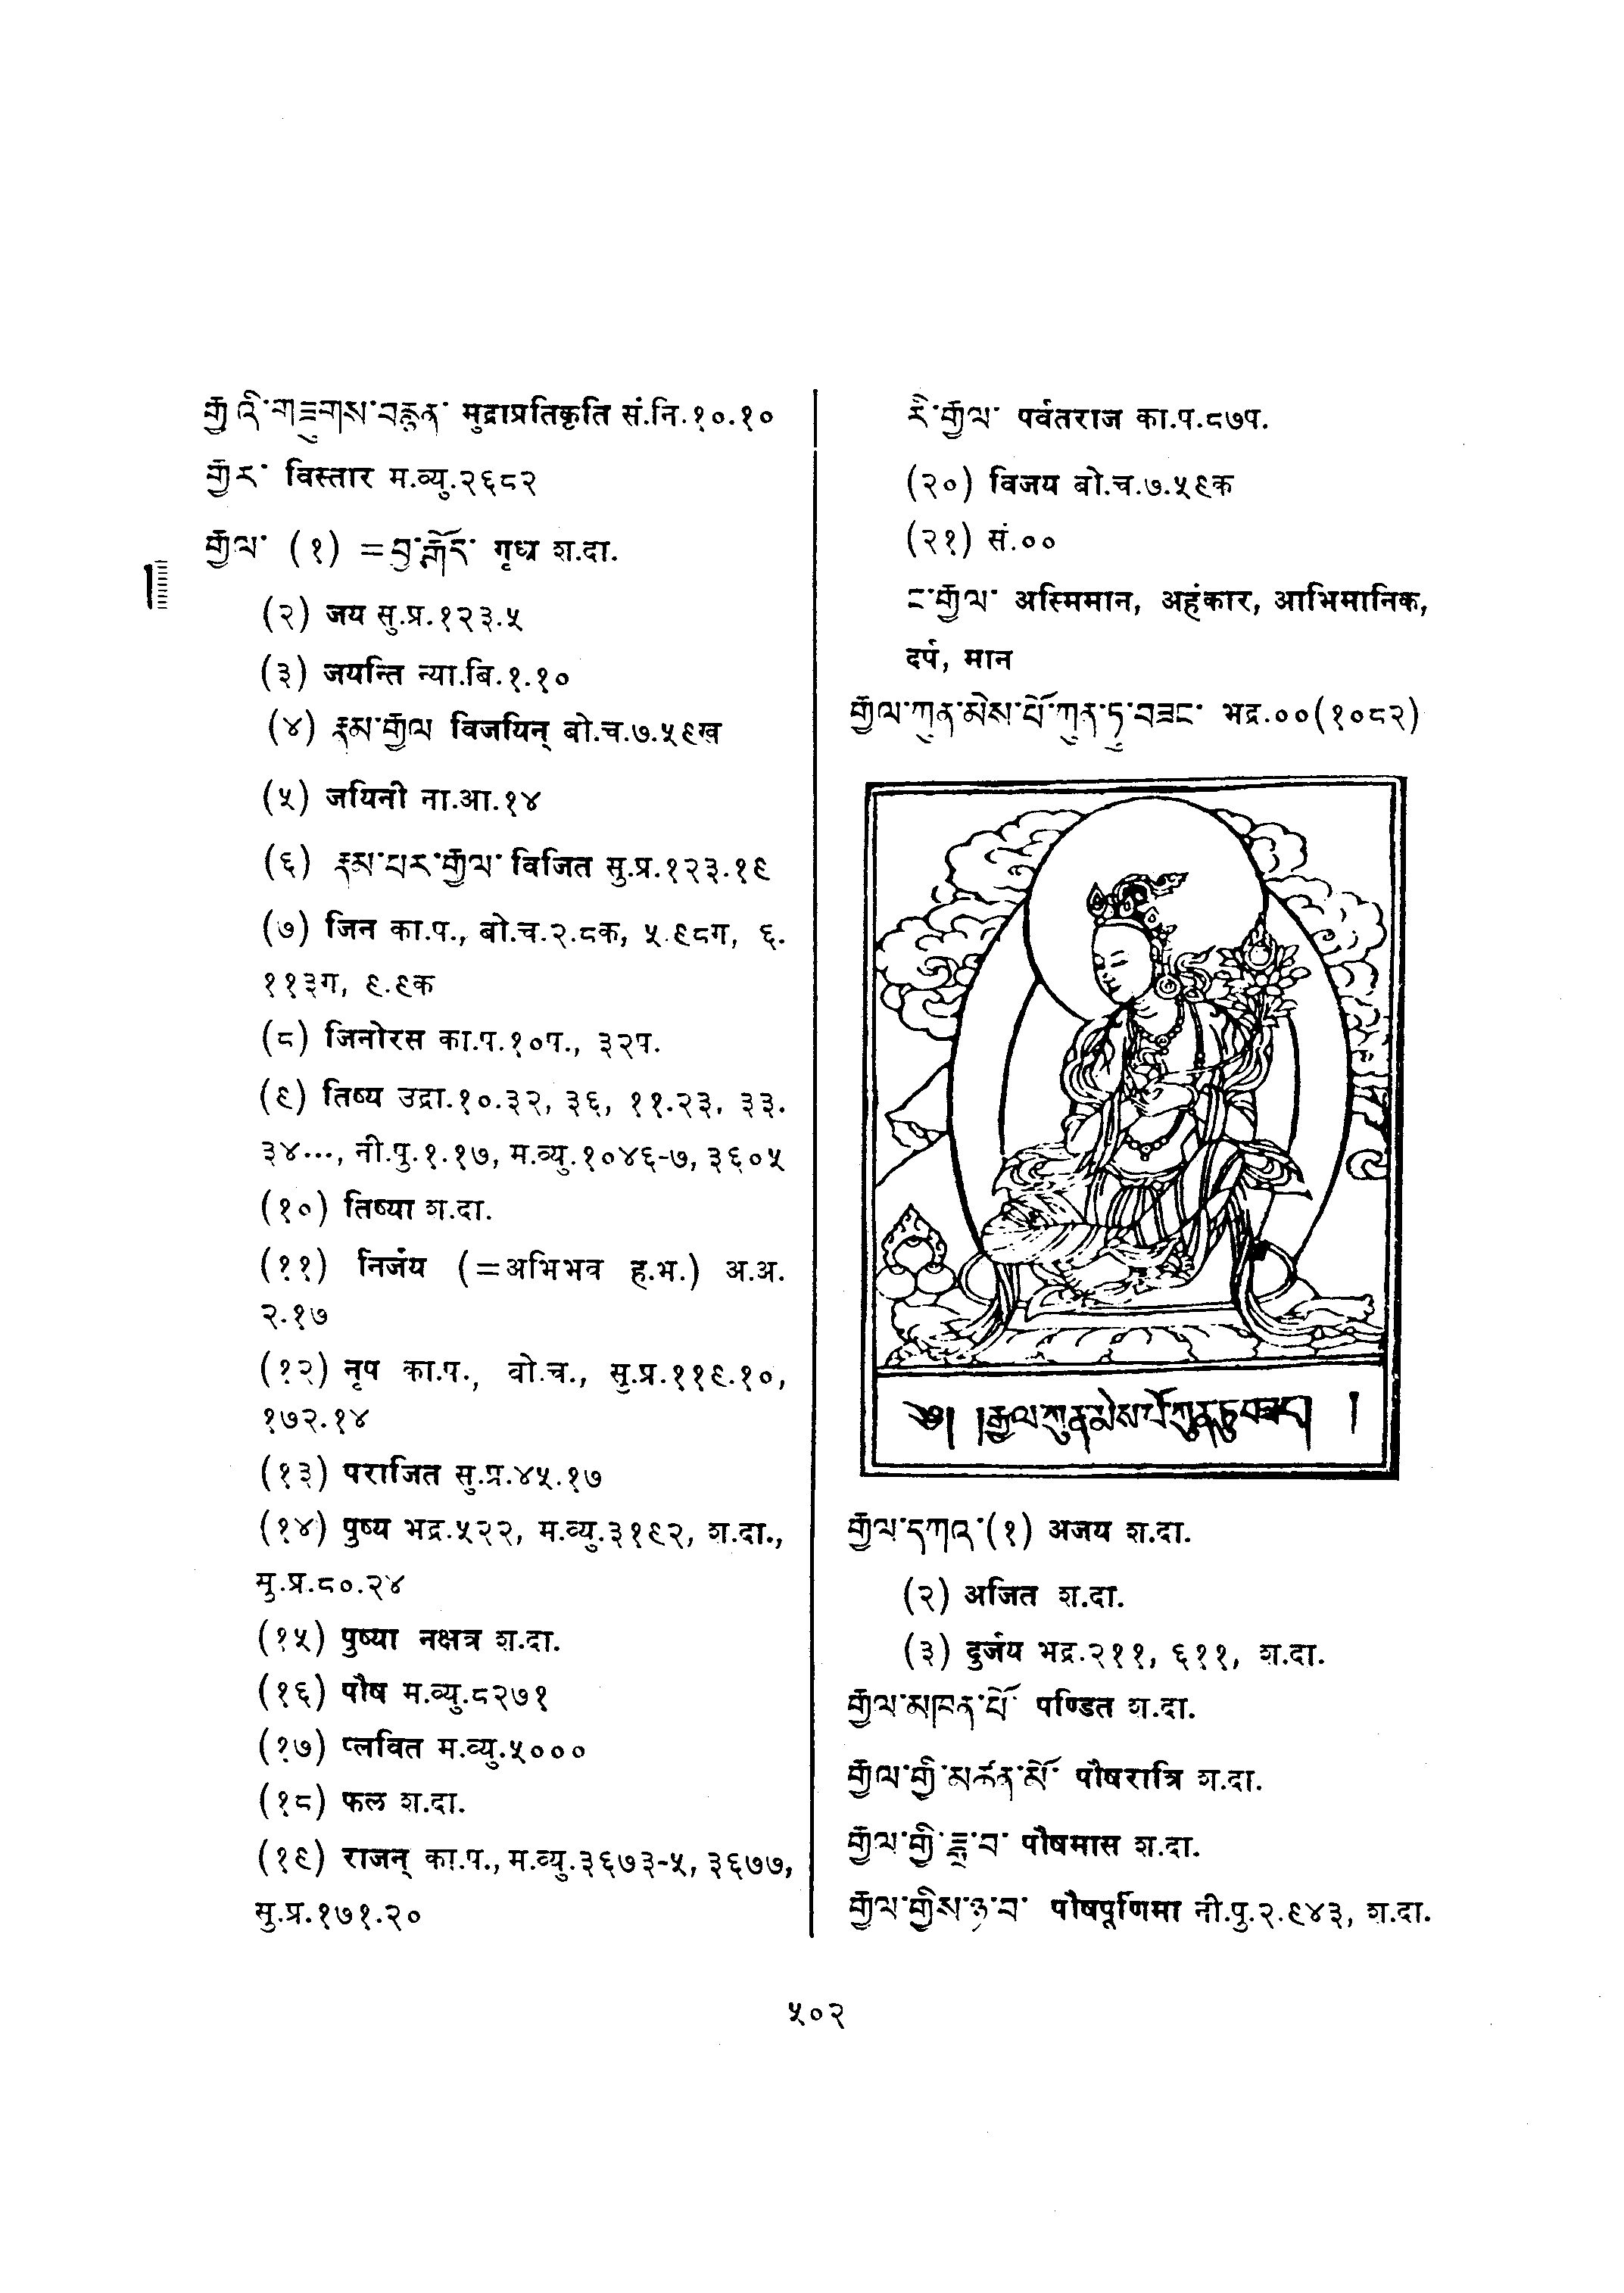 རྒྱའི་གཟུགས་བརྙན་ मुद्राप्रतिकृति सं.नि.१०.१०
རྒྱར་ विस्तार म.व्यु.२६८२
རྒྱལ་ (१) =བྱ་རྒོད་ गृध्र श.दा.
(२) जय सु.प्र.१२३.५
(३) जयन्ति न्या.बि.१.१०
(४) རྣམ་རྒྱལ विजयिन् बो.च.७.५९ख
(५) जयिनी ना.आ.१४
(६) རྣམ་པར་རྒྱལ་ विजित सु.प्र.१२३.१९
(७) जिन का.प., बो.च.२.८क, ५.९८ग, ६.
११३ग, ९.९क
(८) जिनोरस का.प.१०प., ३२प.
(९) तिष्य उद्रा.१०.३२, ३६, ११.२३, ३३.
३४..., नी.पु.१.१७, म.व्यु.१०४६-७, ३६०५
(१०) तिष्या श.दा.
(११) निर्जय (=अभिभव ह.भ.) अ.अ.
२.१७
(१२) नृप का.प., बो.च., सु.प्र.११९.१०,
१७२.१४
(१३) पराजित सु.प्र.४५.१७
(१४) पुष्य भद्र.५२२, म.व्यु.३१९२, श.दा.,
सु.प्र.८०.२४
(१५) पुष्या नक्षत्र श.दा.
(१६) पौष म.व्यु.८२७१
(१७) प्लवित म.व्यु.५०००
(१८) फल श.दा.
(१९) राजन् का.प., म.व्यु.३६७३-५, ३६७७,
सु.प्र.१७१.२०
རི་རྒྱལ་ पर्वतराज का.प.८७प.
(२०) विजय बो.च.७.५९क
(२१) सं.००
ང་རྒྱལ་ अस्मिमान, अहंकार, आभिमानिक,
दर्प, मान
རྒྱལ་ཀུན་མེས་པོ་ཀུན་ཏུ་བཟང་ भद्र.००(१०८२)
༄༅། །རྒྱལ་ཀུན་མེས་པོ་ཀུན་ཏུ་བཟང་། །
རྒྱལ་དཀའ་(१) अजय श.दा.
(२) अजित श.दा.
(३) दुर्जय भद्र.२११, ६११, श.दा.
རྒྱལ་མཁན་པོ་ पण्डित श.दा.
རྒྱལ་གྱི་མཚན་མོ་ पौषरात्रि श.दा.
རྒྱལ་གྱི་ཟླ་བ་ पौषमास श.दा.
རྒྱལ་གྱིས་ཉ་བ་ पौषपूर्णिमा नी.पु.२.९४३, श.दा.
५०२